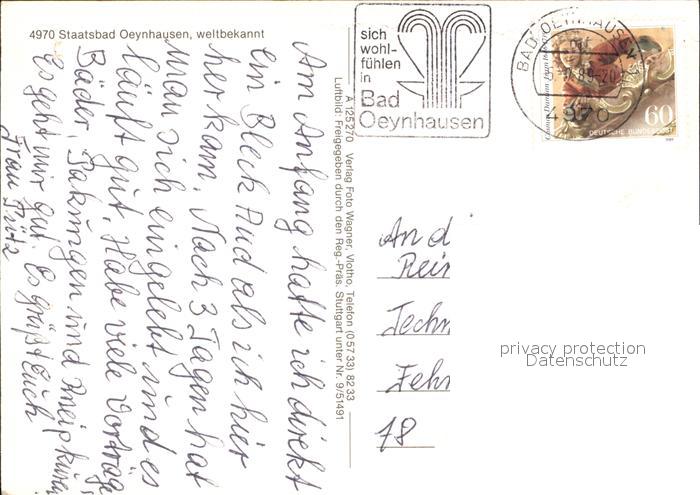 4970 Staatsbad Oeynhausen, weltbekannt
Am Anfang hatte ich direkt
ein Black Aud als ich hier
her kam. Nach 3 Tagen hat
man sich eingelebt und es
läuft gut. Habe viele Vorträge,
Bäder, Pakungen und Kneipkuren
Es geht mir gut. Es grüßt Euch
Frau
A 125270 Verlag Foto Wagner, Vlotho, Telefon (05733) 8233
Luftbild: Freigegeben durch den Reg.-Präs. Stuttgart unter Nr. 9/51491
sich
wohl-
fühlen
in
Bad
Oeynhausen
BAD OEYNHAUSEN
4970
60
DEUTSCHE BUNDESPOST
An d
Rein
Techn
Fehr
78
privacy protection
Datenschutz